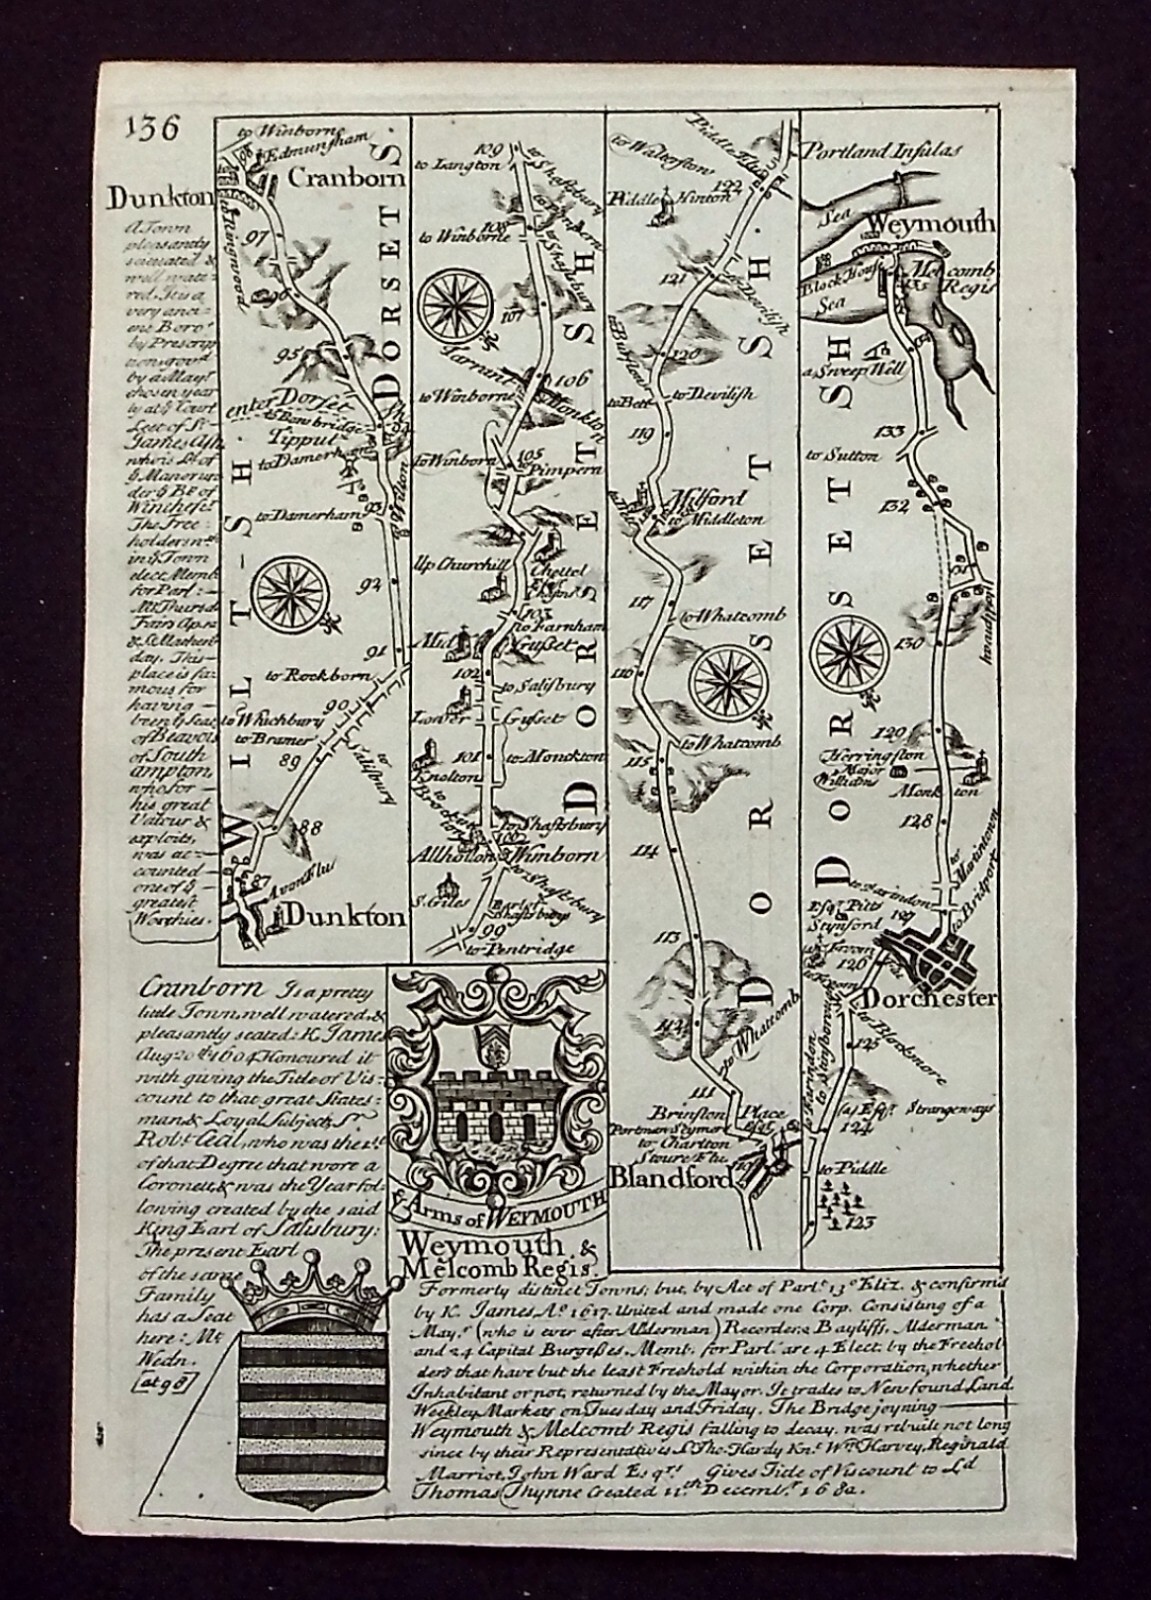 136
Dunkton
A Town
pleasantly
scituated &
well wate:
red. It is a
very anci=
ent Boro'
by Prescrip
tion, govrd
by a Mayr
chosen year
ly at ye Court
Leet of Sr
James Ash
who is Ld of
ye Manor un
der ye Bp of
Winchestr
The Free:
holders
in ye Town
elect Memb
for Parl:
Mt Thursd
Fairs Apr. 12
day. This
place is fa:
mous for
having
been ye Seat
of Beavois
of South
ampton,
who for
his great
Valour &
exploits,
was ac=
counted
one of ye
greatest
Worthies.
to Winborne
Edmunsham
98
Cranborn
to Ringwood
97
96
95
enter Dorset
DORSET S.
Tipput
94
to Damerham
93
to Wilton
to Damerham
92
WILT-SH.
91
to Rockborn
90
to Whichbury
to Bramer
89
to Salisbury
88
87
Avon Flu
Dunkton
109
to Langton
to Shaftsbury
108
to Pimpern
to Winborne
to Shaftsbury
107
Tarrant
106
to Winborne
Monkton
to Winborn
105
to Pimpern
Up Churchill
Chettel
Esqr
103
to Farnham
Mid
Gusset
102
to Salisbury
Lower
Gusset
101
to Monckton
Knolton
to Shaftsbury
100
Allhollon
Winborn
to Shaftsbury
S. Giles
Earl of
Shaftsburys
99
to Pentridge
DORSET SH
to Walterston
Piddle Flu
122
Piddle Hinton
121
to Devilish
to Burston
120
to Bett
to Devilish
119
Milford
to Middleton
117
to Whatcomb
116
to Whatcomb
115
114
113
112
to Whatcomb
111
Brinston Place
Portmen Seymore Esqr
to Charlton
Stoure Flu.
110
Blandford
DORSET SH.
Portland Insulas
Sea
Weymouth
Block House
Melcomb
Regis
135
Sea
134
a Sweep Well
133
to Sutton
132
131
Upway
130
129
Herringston
Major
Williams
Monkton
128
to Martintown
to Farindon
Esqr Pitts
Stinford
127
to Bridport
to Froom
126
Dorchester
to Blackmore
125
to Farinden
to Stinford
(a) Esqr Strangeways
124
to Piddle
123
DORSET SH
Cranborn Is a pretty
little Town, well watered, &
pleasantly seated: K. James
Aug 20th 1604 Honoured it
with giving the Title of Vis=
count to that great States=
man & Loyal Subject, Sr
Robt Cecil, who was the 1st
of that Degree that wore a
Coronett, & was the Year fol=
lowing created by the said
King Earl of Salisbury:
The present Earl
of the same
Family
has a Seat
here: Mt
Wedn.
at 98
ye Arms of WEYMOUTH
Weymouth &
Melcomb Regis.
Formerly distinct Towns; but, by Act of Parlt 13o Eliz. & confirm'd
by K. James, Ao 1617. United and made one Corp. Consisting of a
Mayr (who is ever after Alderman) Recorder, 2 Bayliffs, Alderman
and 24 Capital Burgeses. Memb. for Parl. are 4 Elect. by the Freehol
ders that have but the least Freehold within the Corporation, whether
Inhabitant or not, returned by the Mayor. It trades to Newfound Land
Weekley Markets on Tuesday and Friday. The Bridge joyning
Weymouth & Melcomb Regis falling to decay, was rebuilt not long
since by their Representatives Sr Tho. Hardy Knt Wm Harvey, Reginald
Marriot, John Ward Esqrs Gives Title of Viscount to Ld
Thomas Thynne Created 11th Decembr 1682.